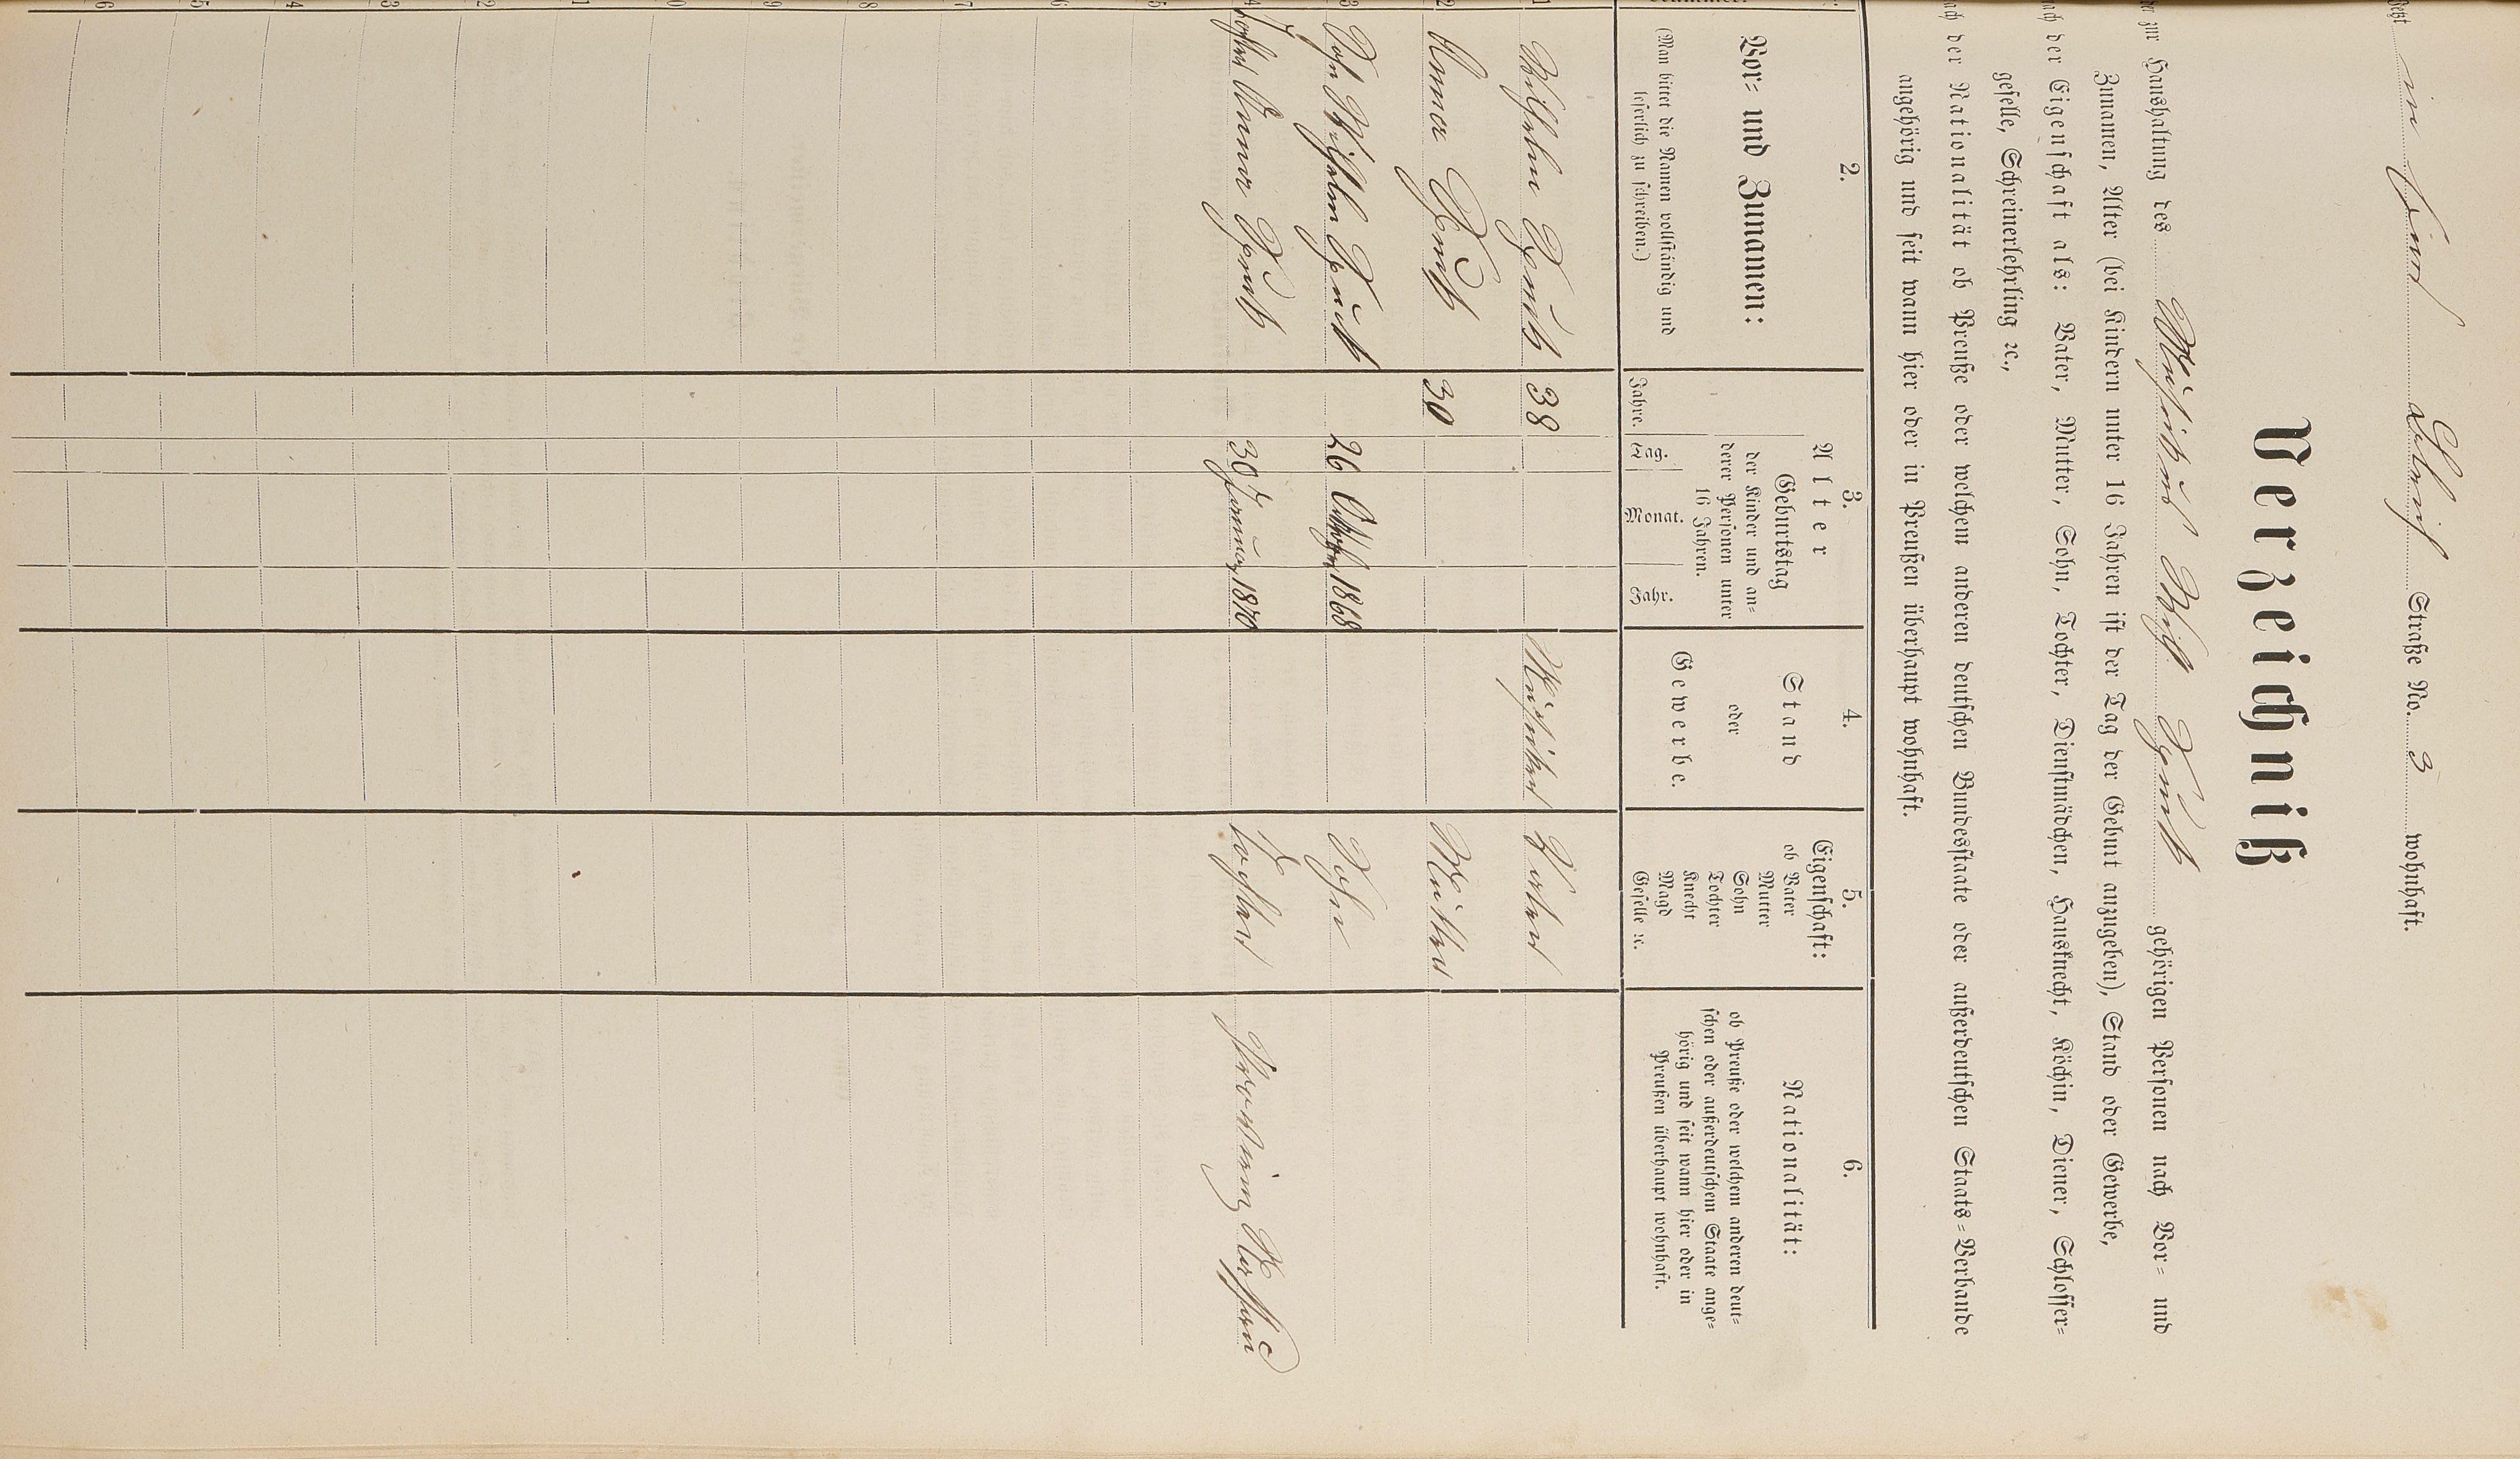 Jetzt in hier Lehrs Straße No. 3 wohnhaft.
Verzeichniß
der zur Haushaltung des Musikus Wilh. gehörigen Personen nach Vor- und
Zunamen, Alter (bei Kindern unter 16 Jahren ist der Tag der Geburt anzugeben), Stand oder Gewerbe,
nach der Eigenschaft als: Vater, Mutter, Sohn, Tochter, Dienstmädchen, Hausknecht, Köchin, Diener, Schlosser-
geselle, Schreinerlehrling ꝛc.,
nach der Nationalität ob Preuße oder welchem anderen deutschen Bundesstaate oder außerdeutschen Staats-Verbande
angehörig und seit wann hier oder in Preußen überhaupt wohnhaft.
2. 3. 4. 5. 6.
Vor- und Zunamen:
(Man bittet die Namen vollständig und
leserlich zu schreiben.)
Alter
Jahre.
Geburtstag
der Kinder und an-
derer Personen unter
16 Jahren.
Tag. Monat. Jahr.
Stand
oder
Gewerbe.
Eigenschaft:
ob Vater
Mutter
Sohn
Tochter
Knecht
Magd
Geselle ꝛc.
Nationalität:
ob Preuße oder welchem anderen deut-
schen oder außerdeutschem Staate ange-
hörig und seit wann hier oder in
Preußen überhaupt wohnhaft.
1 Wilhelm 38 Musiker Vater
2 Anna 30 Mutter
3 Sohn Wilhelm 26 October 1868 Sohn
4 Tochter Anna 30 Januar 1870 Tochter Provinz Nassau
5
6
7
8
9
0
1
2
3
4
5
6